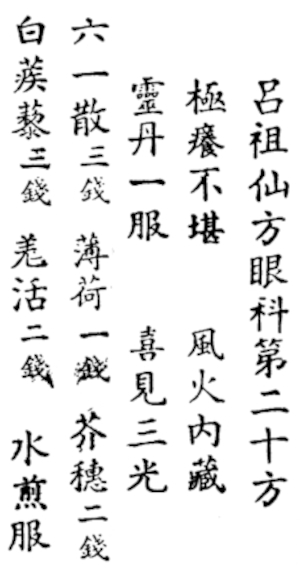 呂祖仙方眼科第二十方
極癢不堪　風火內藏
靈丹一服　喜見三光
六一散三錢　薄荷一錢　芥穗二錢
白蒺藜三錢　羌活二錢　水煎服